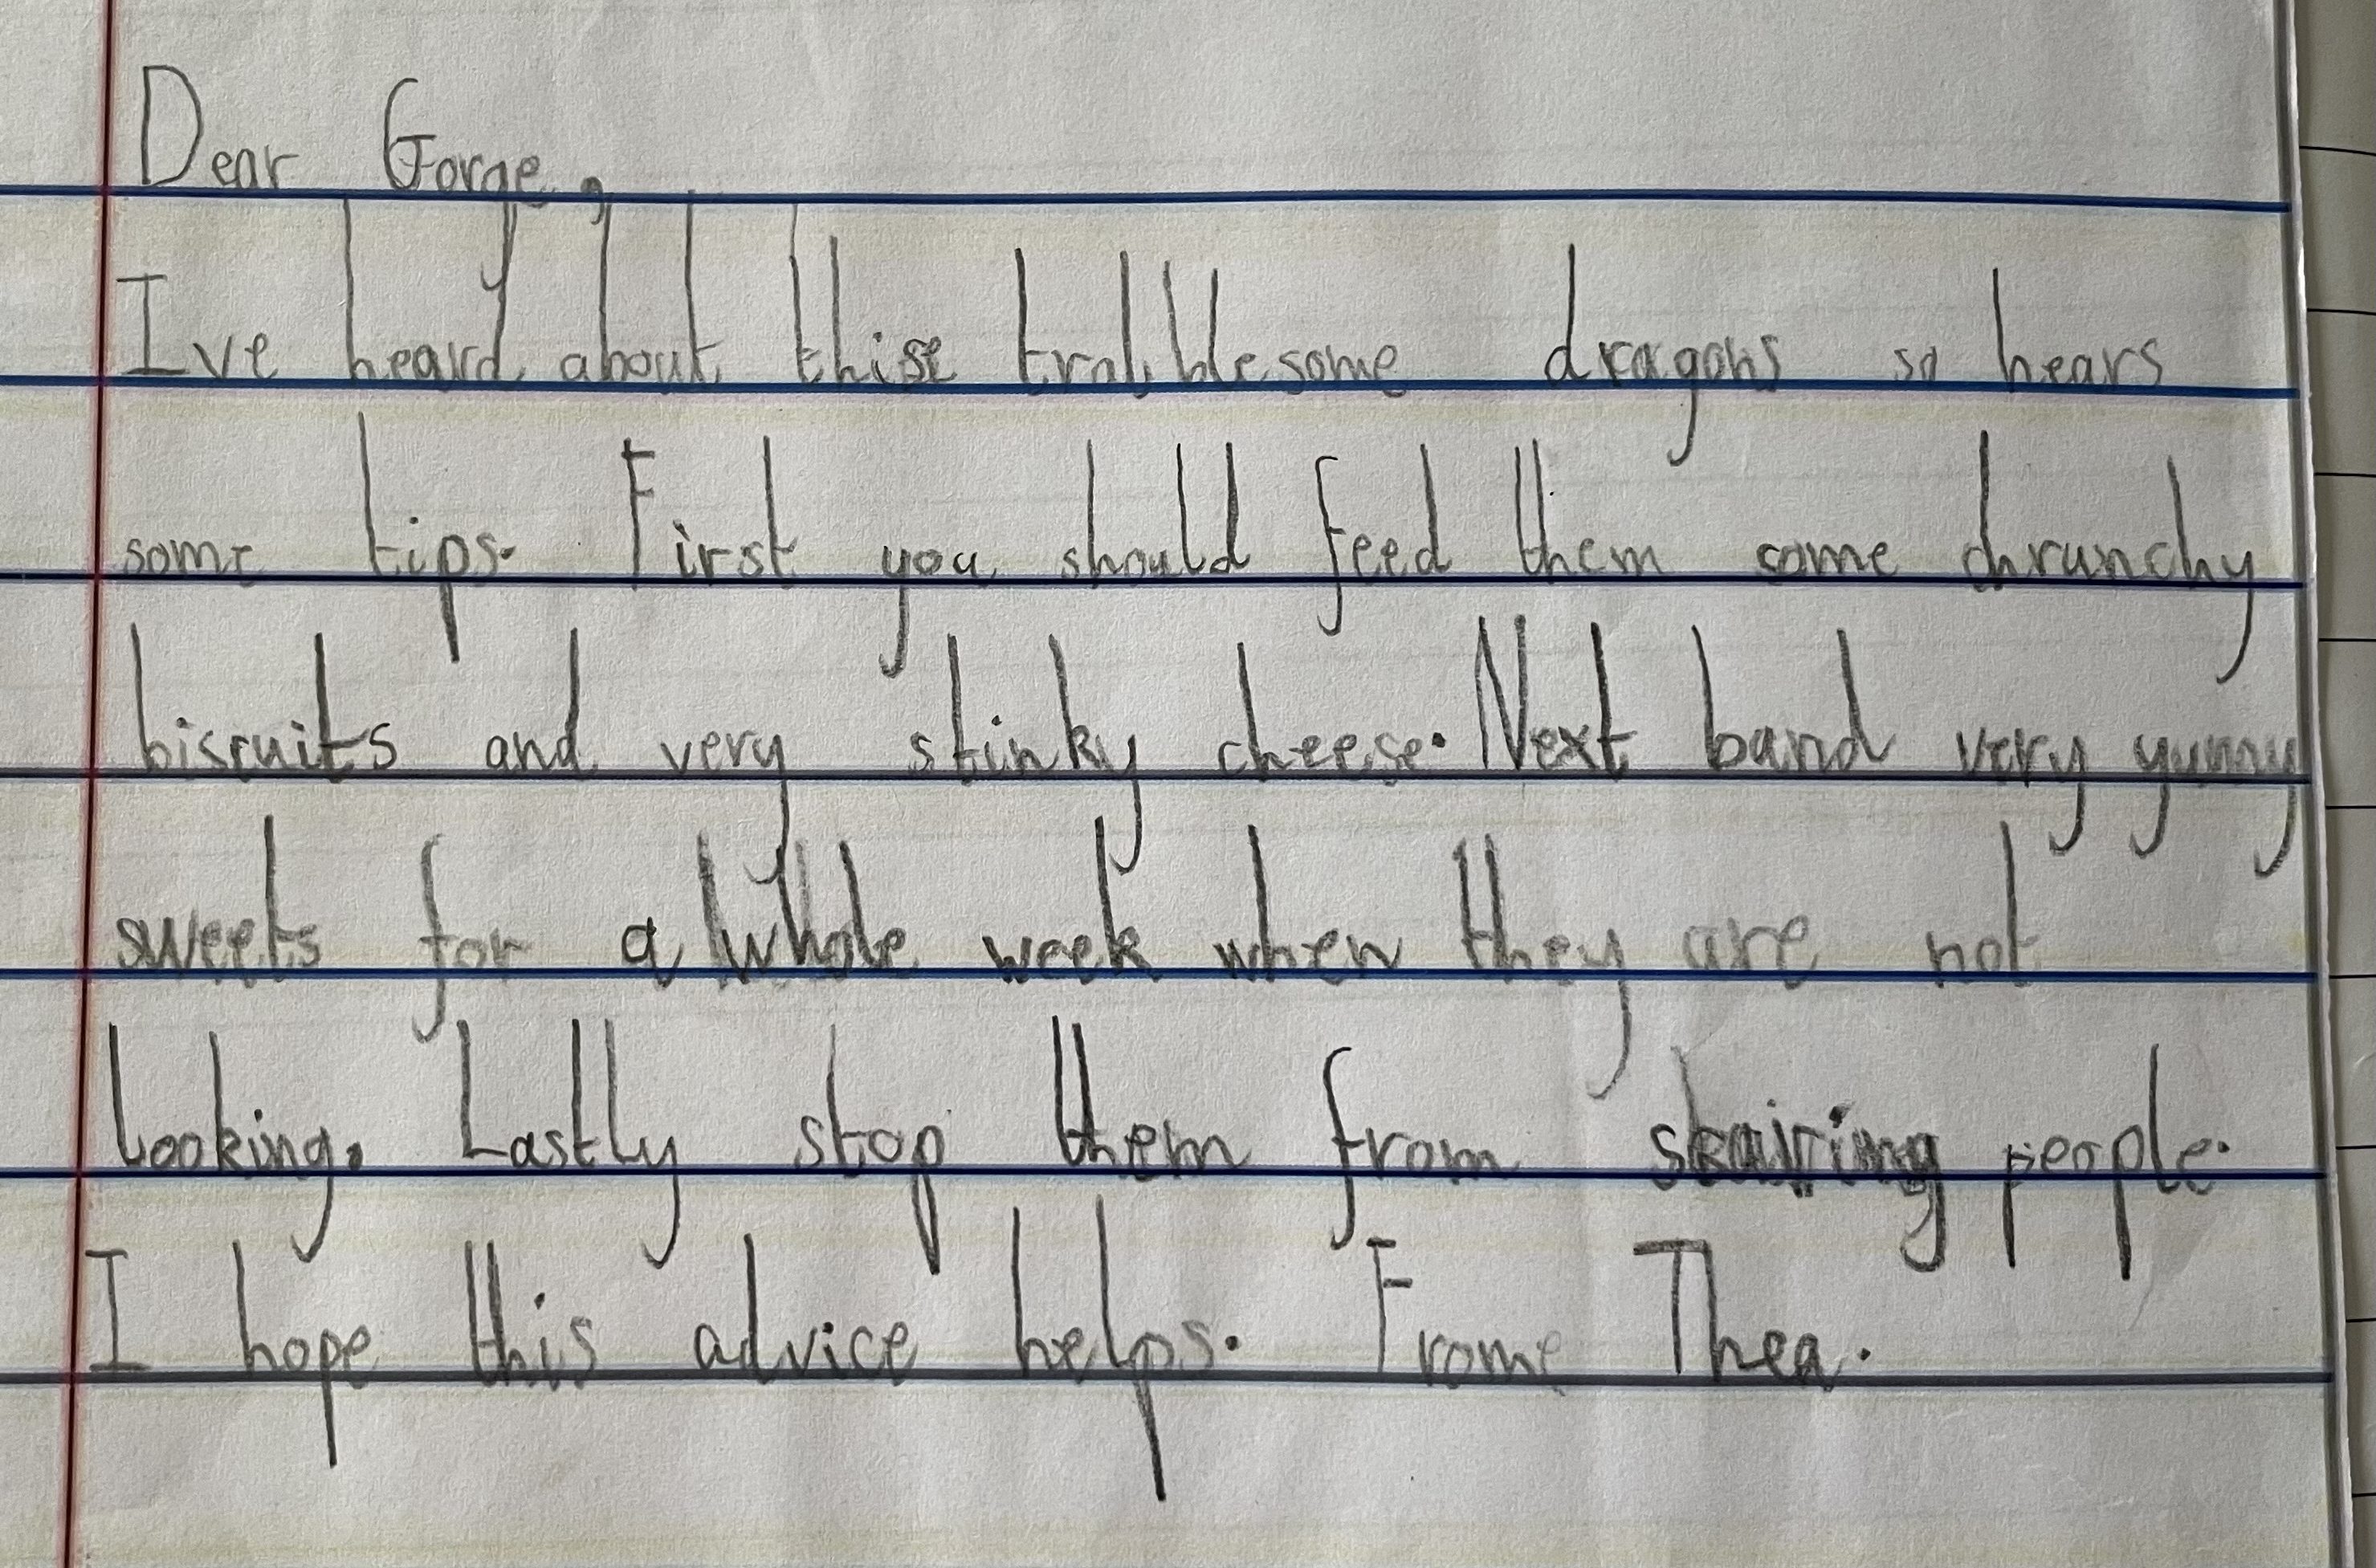 Dear Gorge,
Ive heard about thise trablblesome dragons so hears
some tips. First you should feed them some chrunchy
biscuits and very stinky cheese. Next band very yumy
sweets for a whole week when they are not
looking. Lastly stop them from skairing people.
I hope this advice helps. Frome Thea.